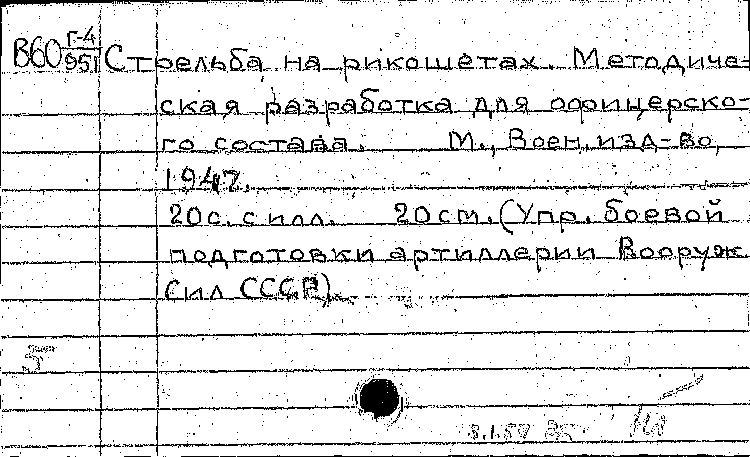 В60 Г-4/951 Стрельба на рикошетах. Методиче-
ская разработка для офицерско-
го состава. М., Воен. изд-во,
1947.
20с. с илл. 20см. (Упр. боевой
подготовки артиллерии Вооруж.
сил СССР).
5